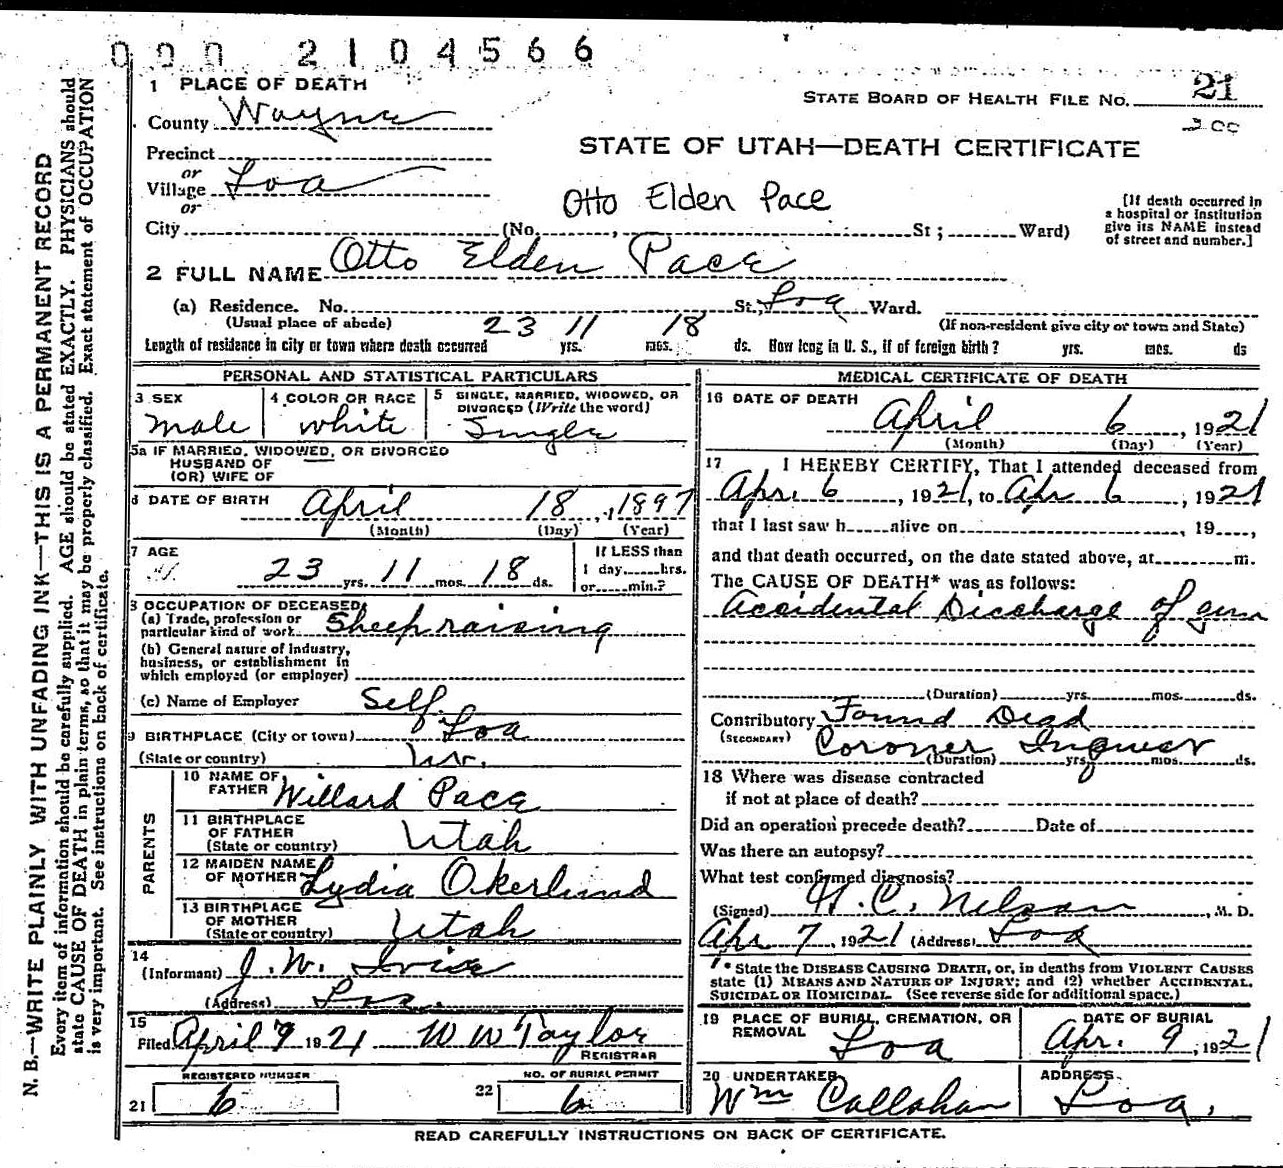 000 2104566
1 PLACE OF DEATH
STATE BOARD OF HEALTH FILE NO. 21
200
County Wayne
STATE OF UTAH—DEATH CERTIFICATE
Precinct
or
Village Loa
or
Otto Elden Pace
[If death occurred in a hospital or institution give its NAME instead of street and number.]
City (No. , St; Ward)
2 FULL NAME Otto Elden Pace
(a) Residence. No. St., Loa Ward.
(Usual place of abode) (If non-resident give city or town and State)
23 11 18
Length of residence in city or town where death occurred yrs. mos. ds. How long in U. S., if of foreign birth? yrs. mos. ds
PERSONAL AND STATISTICAL PARTICULARS
3 SEX
male
4 COLOR OR RACE
white
5 SINGLE, MARRIED, WIDOWED, OR DIVORCED (Write the word)
Single
5a IF MARRIED, WIDOWED, OR DIVORCED
HUSBAND OF
(OR) WIFE OF
6 DATE OF BIRTH April 18, 1897
(Month) (Day) (Year)
7 AGE
23 yrs. 11 mos. 18 ds.
If LESS than
1 day,......hrs.
or......min.?
8 OCCUPATION OF DECEASED
(a) Trade, profession or
particular kind of work Sheep raising
(b) General nature of industry,
business, or establishment in
which employed (or employer)
(c) Name of Employer Self
9 BIRTHPLACE (City or town) Loa
(State or country)
PARENTS
10 NAME OF
FATHER Willard Pace
11 BIRTHPLACE
OF FATHER
(State or country) Utah
12 MAIDEN NAME
OF MOTHER Lydia Okerlund
13 BIRTHPLACE
OF MOTHER
(State or country) Utah
14
(Informant) J. W. Ivie
(Address) Loa.
15
Filed April 9 1921 W W Taylor
REGISTRAR
REGISTERED NUMBER
21 6
NO. OF BURIAL PERMIT
22 6
MEDICAL CERTIFICATE OF DEATH
16 DATE OF DEATH
April 6, 1921
(Month) (Day) (Year)
17 I HEREBY CERTIFY, That I attended deceased from
Apr. 6, 1921, to Apr 6, 1921
that I last saw h......alive on , 19....,
and that death occurred, on the date stated above, at..........m.
The CAUSE OF DEATH* was as follows:
Accidental Discharge of gun
(Duration) yrs. mos. ds.
Contributory Found Dead
(SECONDARY) Coroner Inquest
(Duration) yrs. mos. ds.
18 Where was disease contracted
if not at place of death?
Did an operation precede death? Date of
Was there an autopsy?
What test confirmed diagnosis?
(Signed) H. C. Nelson, M. D.
Apr 7, 1921 (Address) Loa
* State the DISEASE CAUSING DEATH, or, in deaths from VIOLENT CAUSES
state (1) MEANS AND NATURE OF INJURY; and (2) whether ACCIDENTAL,
SUICIDAL OR HOMICIDAL. (See reverse side for additional space.)
19 PLACE OF BURIAL, CREMATION, OR
REMOVAL
Loa
DATE OF BURIAL
Apr. 9, 1921
20 UNDERTAKER
Wm Callahan
ADDRESS
Loa.
READ CAREFULLY INSTRUCTIONS ON BACK OF CERTIFICATE.
N. B.—WRITE PLAINLY WITH UNFADING INK—THIS IS A PERMANENT RECORD
Every item of information should be carefully supplied. AGE should be stated EXACTLY. PHYSICIANS should
state CAUSE OF DEATH in plain terms, so that it may be properly classified. Exact statement of OCCUPATION
is very important. See instructions on back of certificate.